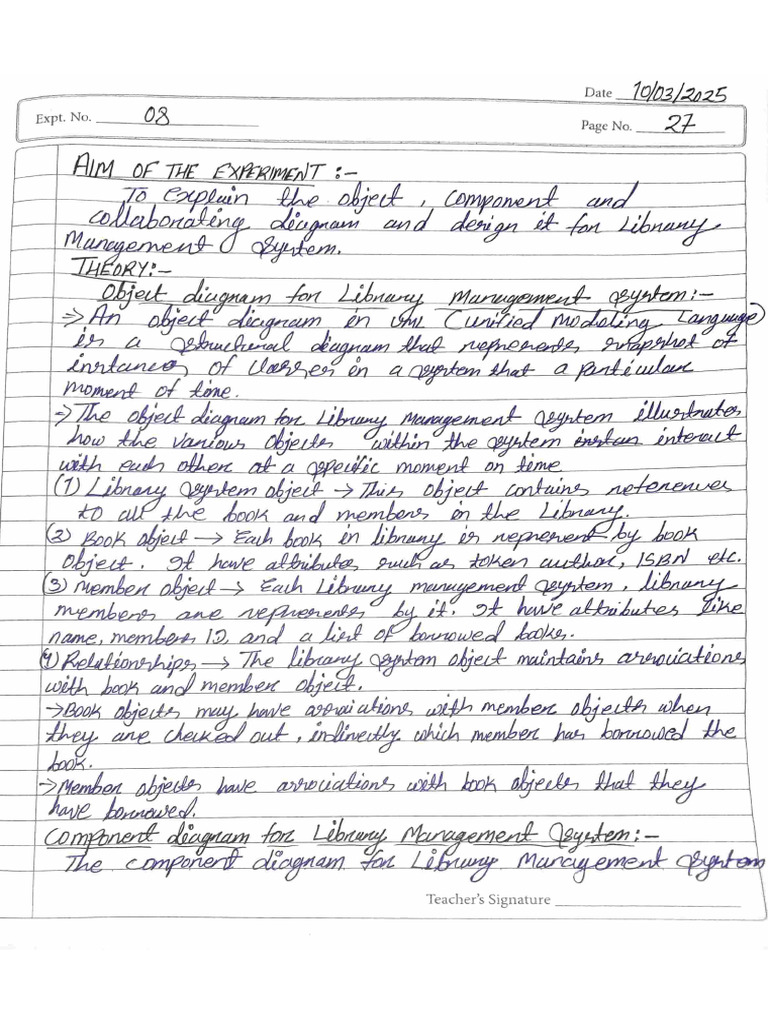 Date 10/03/2025
Expt. No. 08
Page No. 27
AIM OF THE EXPERIMENT :-
To explain the object, component and
collaborating diagram and design it for Library
Management System.
THEORY:-
Object diagram for Library Management System:-
⇒ An object diagram in UML (unified Modeling Language)
is a structural diagram that represents snapshot of
instances of classes in a system that a particular
moment of time.
⇒ The object diagram for Library Management System illustrates
how the various objects within the system instan interact
with each other at a specific moment on time
(1) Library System object → This object contains references
to all the book and members in the Library.
(2) Book object → Each book in library is represent by book
object. It have attributes such as token author, ISBN etc.
(3) Member object → Each Library management system, library
members are represents by it. It have attributes like
name, members ID, and a list of borrowed books.
(4) Relationships → The library system object maintains associations
with book and member object.
→ Book objects may have associations with member objects when
they are checked out, indirectly which member has borrowed the
book.
→ Member objects have associations with book objects that they
have borrowed.
Component diagram for Library Management System:-
The component diagram for Library Management System
Teacher's Signature